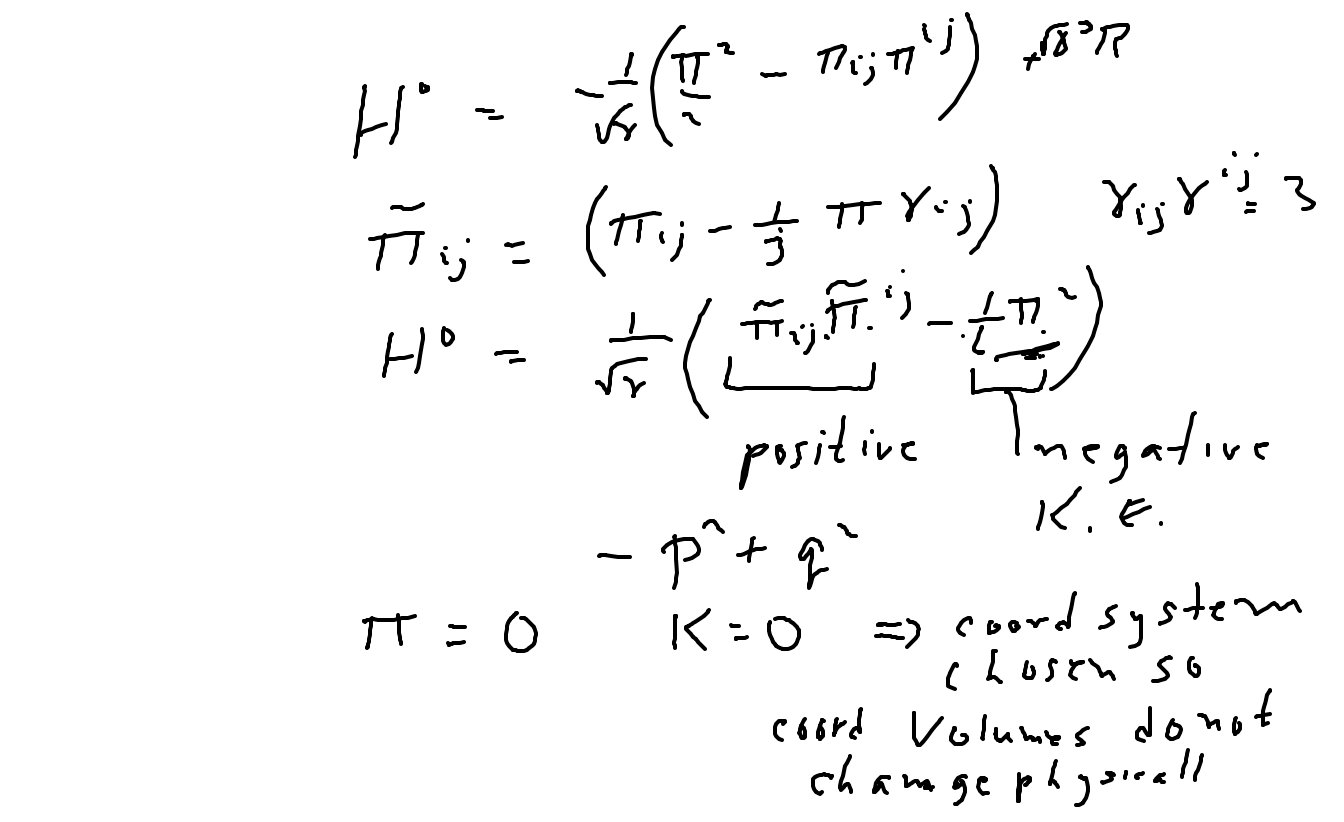 H⁰ = -1/√γ (π²/2 - π_ij π^ij) + √γ ³R
π̃_ij = (π_ij - 1/3 π γ_ij) γ_ij γ^ij = 3
H⁰ = 1/√γ (π̃_ij π̃^ij - 1/6 π²)
positive negative
K.E.
- p² + q²
π = 0 K = 0 => coord system
chosen so
coord Volumes do not
change physicall